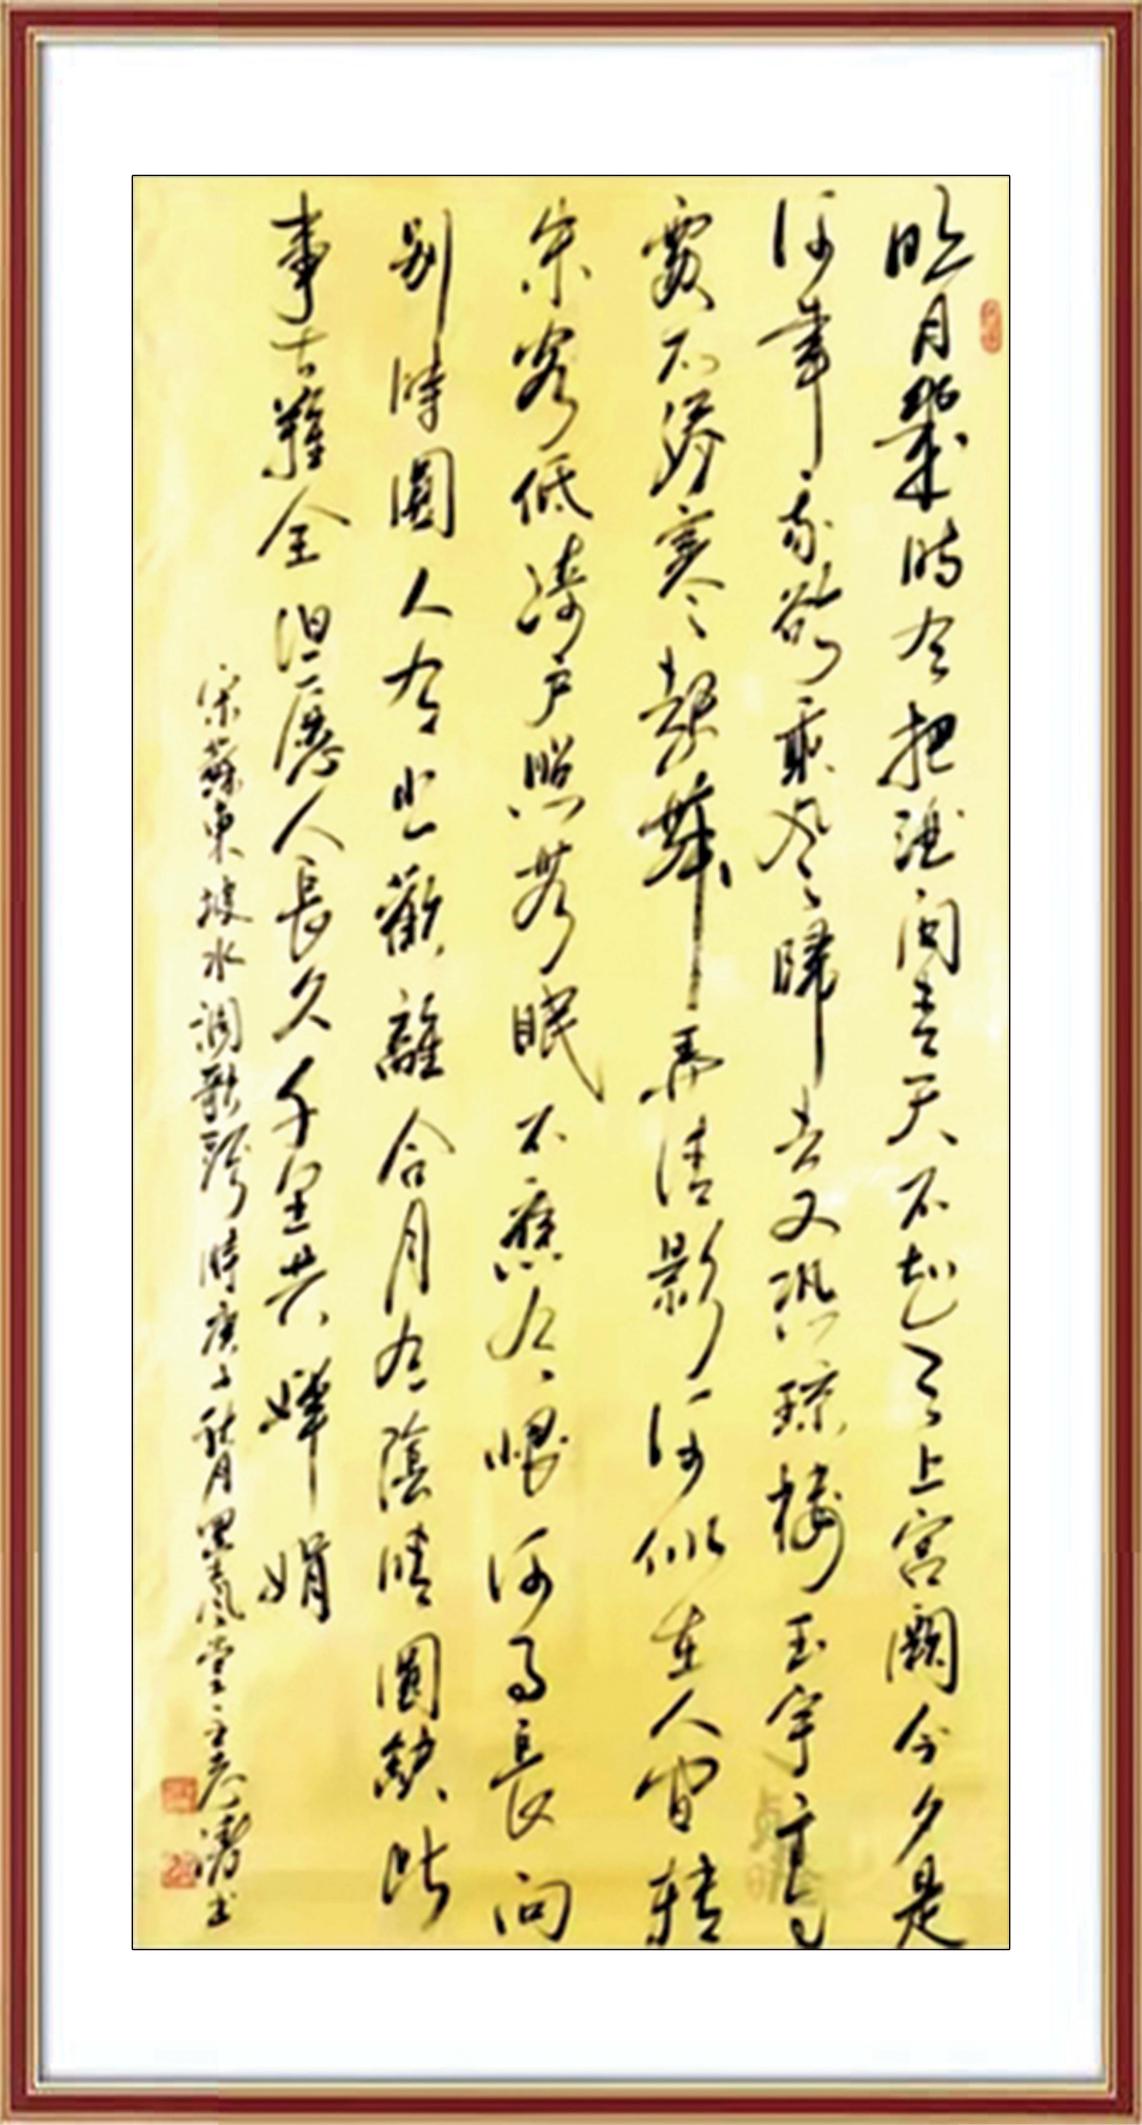 明月幾時有把酒問青天不知天上宮闕今夕是
何年我欲乘风歸去又恐瓊樓玉宇高
處不勝寒起舞弄清影何似在人间轉
朱閣低绮户照无眠不應有恨何事長向
别時圓人有悲歡離合月有陰晴圓缺此
事古難全但願人長久千里共嬋娟
宋蘇東坡水調歌頭時庚子秋月墨